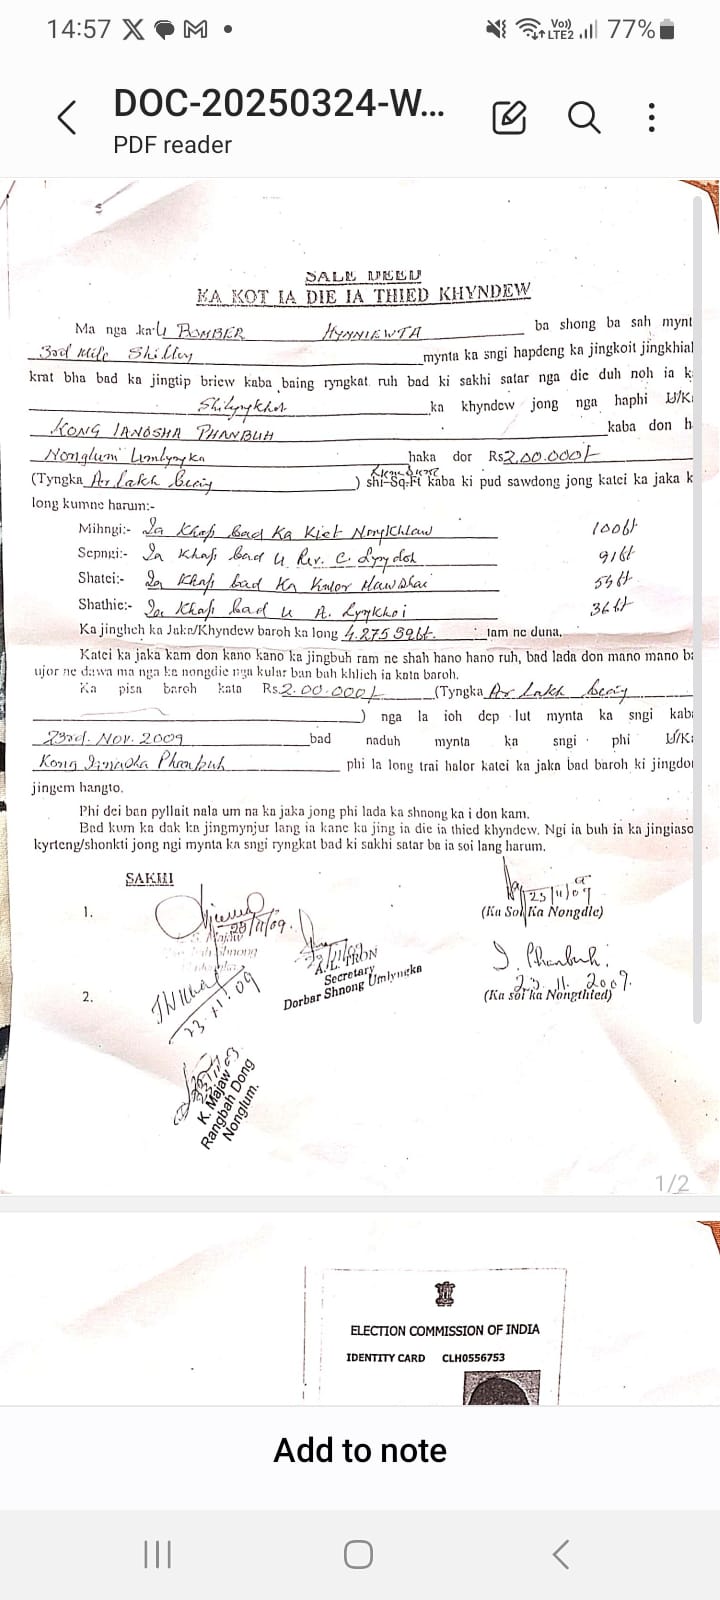 14:57
Vo)) LTE2 77%
DOC-20250324-W...
PDF reader
SALE DEED
KA KOT IA DIE IA THIED KHYNDEW
Ma nga ka/U BOMBER HYNNIEWTA ba shong ba sah mynt
3rd Mile Shillong mynta ka sngi hapdeng ka jingkoit jingkhial
krat bha bad ka jingtip briew kaba baing ryngkat ruh bad ki sakhi satar nga die duh noh ia k
ka khyndew jong nga haphi U/K
KONG IANOSHA PHANBUH kaba don h
Nonglum haka dor Rs 2,00.000/-
(Tyngka Ar Lakh ) shi-Sq.Ft kaba ki pud sawdong jong katei ka jaka k
long kumne harum:-
Mihngi:- Ia Khap bad Ka Kiet 100ft
Sepngi:- Ia Khap bad u Rev. C. 91ft
Shatei:- Ia Khap bad Ka
Shathie:- Ia Khap bad u A. 36ft
Ka jingheh ka Jaka/Khyndew baroh ka long 4.275 Sqft. tam ne duna.
Katei ka jaka kam don kano kano ka jingbuh ram ne shah hano hano ruh, bad lada don mano mano ba
ujor ne dawa ma nga ke nongdie nga kular ban buh khlieh ia kata baroh.
Ka pisa baroh kata Rs 2.00.000/- (Tyngka Ar Lakh
) nga la ioh dep lut mynta ka sngi kab
23rd. Nov. 2009 bad naduh mynta ka sngi phi U/K
Kong Phanbuh phi la long trai halor katei ka jaka bad baroh ki jingdon
jingem hangto.
Phi dei ban pyllait nala um na ka jaka jong phi lada ka shnong ka i don kam.
Bad kum ka dak ka jingmynjur lang ia kane ka jing ia die ia thied khyndew. Ngi ia buh ia ka jingiaso
kyrteng/shonkti jong ngi mynta ka sngi ryngkat bad ki sakhi satar ba ia soi lang harum.
SAKHI
1.
23/11/09
(Ka Soi Ka Nongdie)
Secretary
Dorbar Shnong Umlyngka
I Phanbuh
23. 11. 2009.
(Ka soi ka Nongthied)
2.
23.11.09
K. Majaw
Rangbah Dong
Nonglum.
1/2
ELECTION COMMISSION OF INDIA
IDENTITY CARD CLH0556753
Add to note